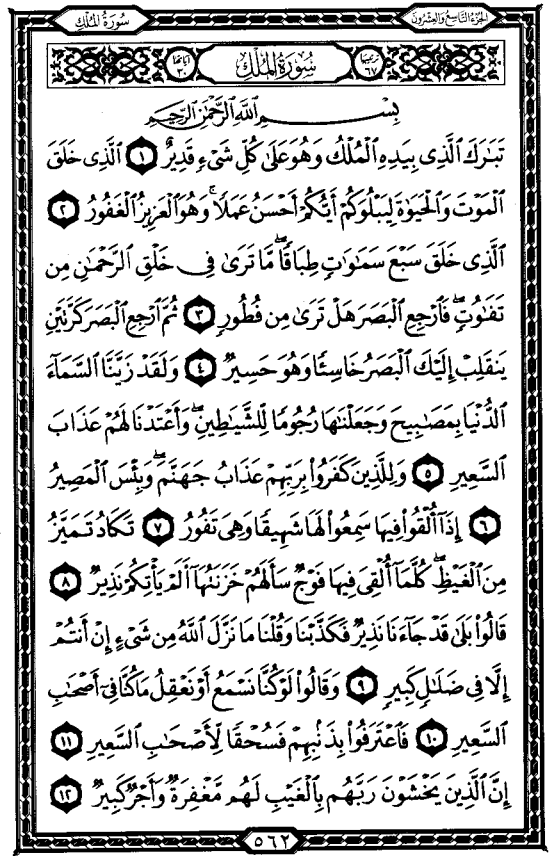 سُورَةُ المُلْكِ
الجُزْءُ التَّاسِعُ وَالعِشْرُونَ
تَرتيبُهَا ٦٧ سُورَةُ المُلْكِ آيَاتُهَا ٣٠
بِسْمِ ٱللَّهِ ٱلرَّحْمَٰنِ ٱلرَّحِيمِ
تَبَٰرَكَ ٱلَّذِى بِيَدِهِ ٱلْمُلْكُ وَهُوَ عَلَىٰ كُلِّ شَىْءٍ قَدِيرٌ ١ ٱلَّذِى خَلَقَ
ٱلْمَوْتَ وَٱلْحَيَوٰةَ لِيَبْلُوَكُمْ أَيُّكُمْ أَحْسَنُ عَمَلًا ۚ وَهُوَ ٱلْعَزِيزُ ٱلْغَفُورُ ٢
ٱلَّذِى خَلَقَ سَبْعَ سَمَٰوَٰتٍ طِبَاقًا ۖ مَّا تَرَىٰ فِى خَلْقِ ٱلرَّحْمَٰنِ مِن
تَفَٰوُتٍ ۖ فَٱرْجِعِ ٱلْبَصَرَ هَلْ تَرَىٰ مِن فُطُورٍ ٣ ثُمَّ ٱرْجِعِ ٱلْبَصَرَ كَرَّتَيْنِ
يَنقَلِبْ إِلَيْكَ ٱلْبَصَرُ خَاسِئًا وَهُوَ حَسِيرٌ ٤ وَلَقَدْ زَيَّنَّا ٱلسَّمَآءَ
ٱلدُّنْيَا بِمَصَٰبِيحَ وَجَعَلْنَٰهَا رُجُومًا لِّلشَّيَٰطِينِ ۖ وَأَعْتَدْنَا لَهُمْ عَذَابَ
ٱلسَّعِيرِ ٥ وَلِلَّذِينَ كَفَرُوا۟ بِرَبِّهِمْ عَذَابُ جَهَنَّمَ ۖ وَبِئْسَ ٱلْمَصِيرُ
٦ إِذَآ أُلْقُوا۟ فِيهَا سَمِعُوا۟ لَهَا شَهِيقًا وَهِىَ تَفُورُ ٧ تَكَادُ تَمَيَّزُ
مِنَ ٱلْغَيْظِ ۖ كُلَّمَآ أُلْقِىَ فِيهَا فَوْجٌ سَأَلَهُمْ خَزَنَتُهَآ أَلَمْ يَأْتِكُمْ نَذِيرٌ ٨
قَالُوا۟ بَلَىٰ قَدْ جَآءَنَا نَذِيرٌ فَكَذَّبْنَا وَقُلْنَا مَا نَزَّلَ ٱللَّهُ مِن شَىْءٍ إِنْ أَنتُمْ
إِلَّا فِى ضَلَٰلٍ كَبِيرٍ ٩ وَقَالُوا۟ لَوْ كُنَّا نَسْمَعُ أَوْ نَعْقِلُ مَا كُنَّا فِىٓ أَصْحَٰبِ
ٱلسَّعِيرِ ١٠ فَٱعْتَرَفُوا۟ بِذَنۢبِهِمْ فَسُحْقًا لِّأَصْحَٰبِ ٱلسَّعِيرِ ١١
إِنَّ ٱلَّذِينَ يَخْشَوْنَ رَبَّهُم بِٱلْغَيْبِ لَهُم مَّغْفِرَةٌ وَأَجْرٌ كَبِيرٌ ١٢
٥٦٢